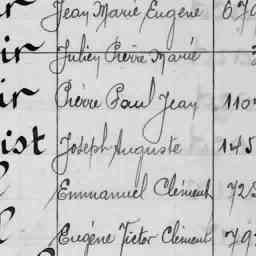 Jean Marie Eugène 679
ir Julien Pierre Marie
ir Pierre Paul Jean 110
ist Joseph Auguste 145
Emmanuel Clément 725
Eugène Victor Clément 79